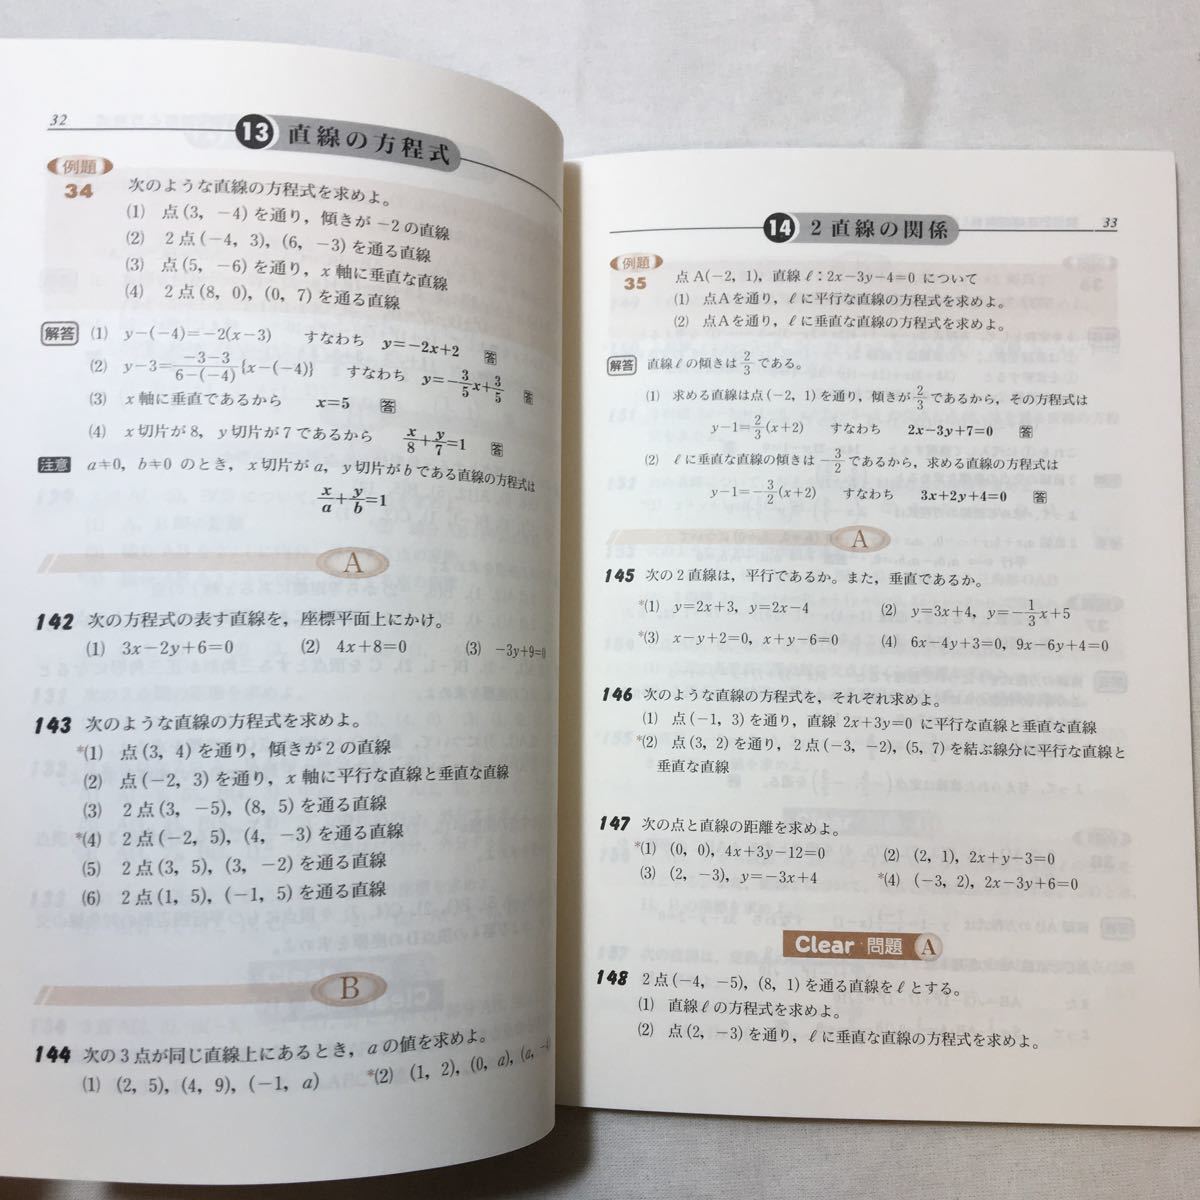 32
13 直線の方程式
例題 34 次のような直線の方程式を求めよ。
(1) 点(3, -4)を通り，傾きが-2の直線
(2) 2点(-4, 3)，(6, -3)を通る直線
(3) 点(5, -6)を通り，x軸に垂直な直線
(4) 2点(8, 0)，(0, 7)を通る直線
解答 (1) y-(-4)=-2(x-3) すなわち y=-2x+2 答
(2) y-3=\frac{-3-3}{6-(-4)}{x-(-4)} すなわち y=-\frac{3}{5}x+\frac{3}{5} 答
(3) x軸に垂直であるから x=5 答
(4) x切片が8，y切片が7であるから \frac{x}{8}+\frac{y}{7}=1 答
注意 a≠0，b≠0 のとき，x切片がa，y切片がbである直線の方程式は
\frac{x}{a}+\frac{y}{b}=1
A
142 次の方程式の表す直線を，座標平面上にかけ。
(1) 3x-2y+6=0 (2) 4x+8=0 (3) -3y+9=0
143 次のような直線の方程式を求めよ。
*(1) 点(3, 4)を通り，傾きが2の直線
(2) 点(-2, 3)を通り，x軸に平行な直線と垂直な直線
(3) 2点(3, -5)，(8, 5)を通る直線
*(4) 2点(-2, 5)，(4, -3)を通る直線
(5) 2点(3, 5)，(3, -2)を通る直線
(6) 2点(1, 5)，(-1, 5)を通る直線
B
144 次の3点が同じ直線上にあるとき，aの値を求めよ。
(1) (2, 5)，(4, 9)，(-1, a) *(2) (1, 2)，(0, a)，(a, -4
14 2直線の関係
33
例題 35 点A(-2, 1)，直線ℓ：2x-3y-4=0 について
(1) 点Aを通り，ℓに平行な直線の方程式を求めよ。
(2) 点Aを通り，ℓに垂直な直線の方程式を求めよ。
解答 直線ℓの傾きは\frac{2}{3}である。
(1) 求める直線は点(-2, 1)を通り，傾きが\frac{2}{3}であるから，その方程式は
y-1=\frac{2}{3}(x+2) すなわち 2x-3y+7=0 答
(2) ℓに垂直な直線の傾きは-\frac{3}{2}であるから，求める直線の方程式は
y-1=-\frac{3}{2}(x+2) すなわち 3x+2y+4=0 答
A
145 次の2直線は，平行であるか。また，垂直であるか。
*(1) y=2x+3，y=2x-4 (2) y=3x+4，y=-\frac{1}{3}x+5
*(3) x-y+2=0，x+y-6=0 (4) 6x-4y+3=0，9x-6y+4=0
146 次のような直線の方程式を，それぞれ求めよ。
(1) 点(-1, 3)を通り，直線 2x+3y=0 に平行な直線と垂直な直線
*(2) 点(3, 2)を通り，2点(-3, -2)，(5, 7)を結ぶ線分に平行な直線と
垂直な直線
147 次の点と直線の距離を求めよ。
*(1) (0, 0)，4x+3y-12=0 (2) (2, 1)，2x+y-3=0
(3) (2, -3)，y=-3x+4 *(4) (-3, 2)，2x-3y+6=0
Clear 問題 A
148 2点(-4, -5)，(8, 1)を通る直線をℓとする。
(1) 直線ℓの方程式を求めよ。
(2) 点(2, -3)を通り，ℓに垂直な直線の方程式を求めよ。